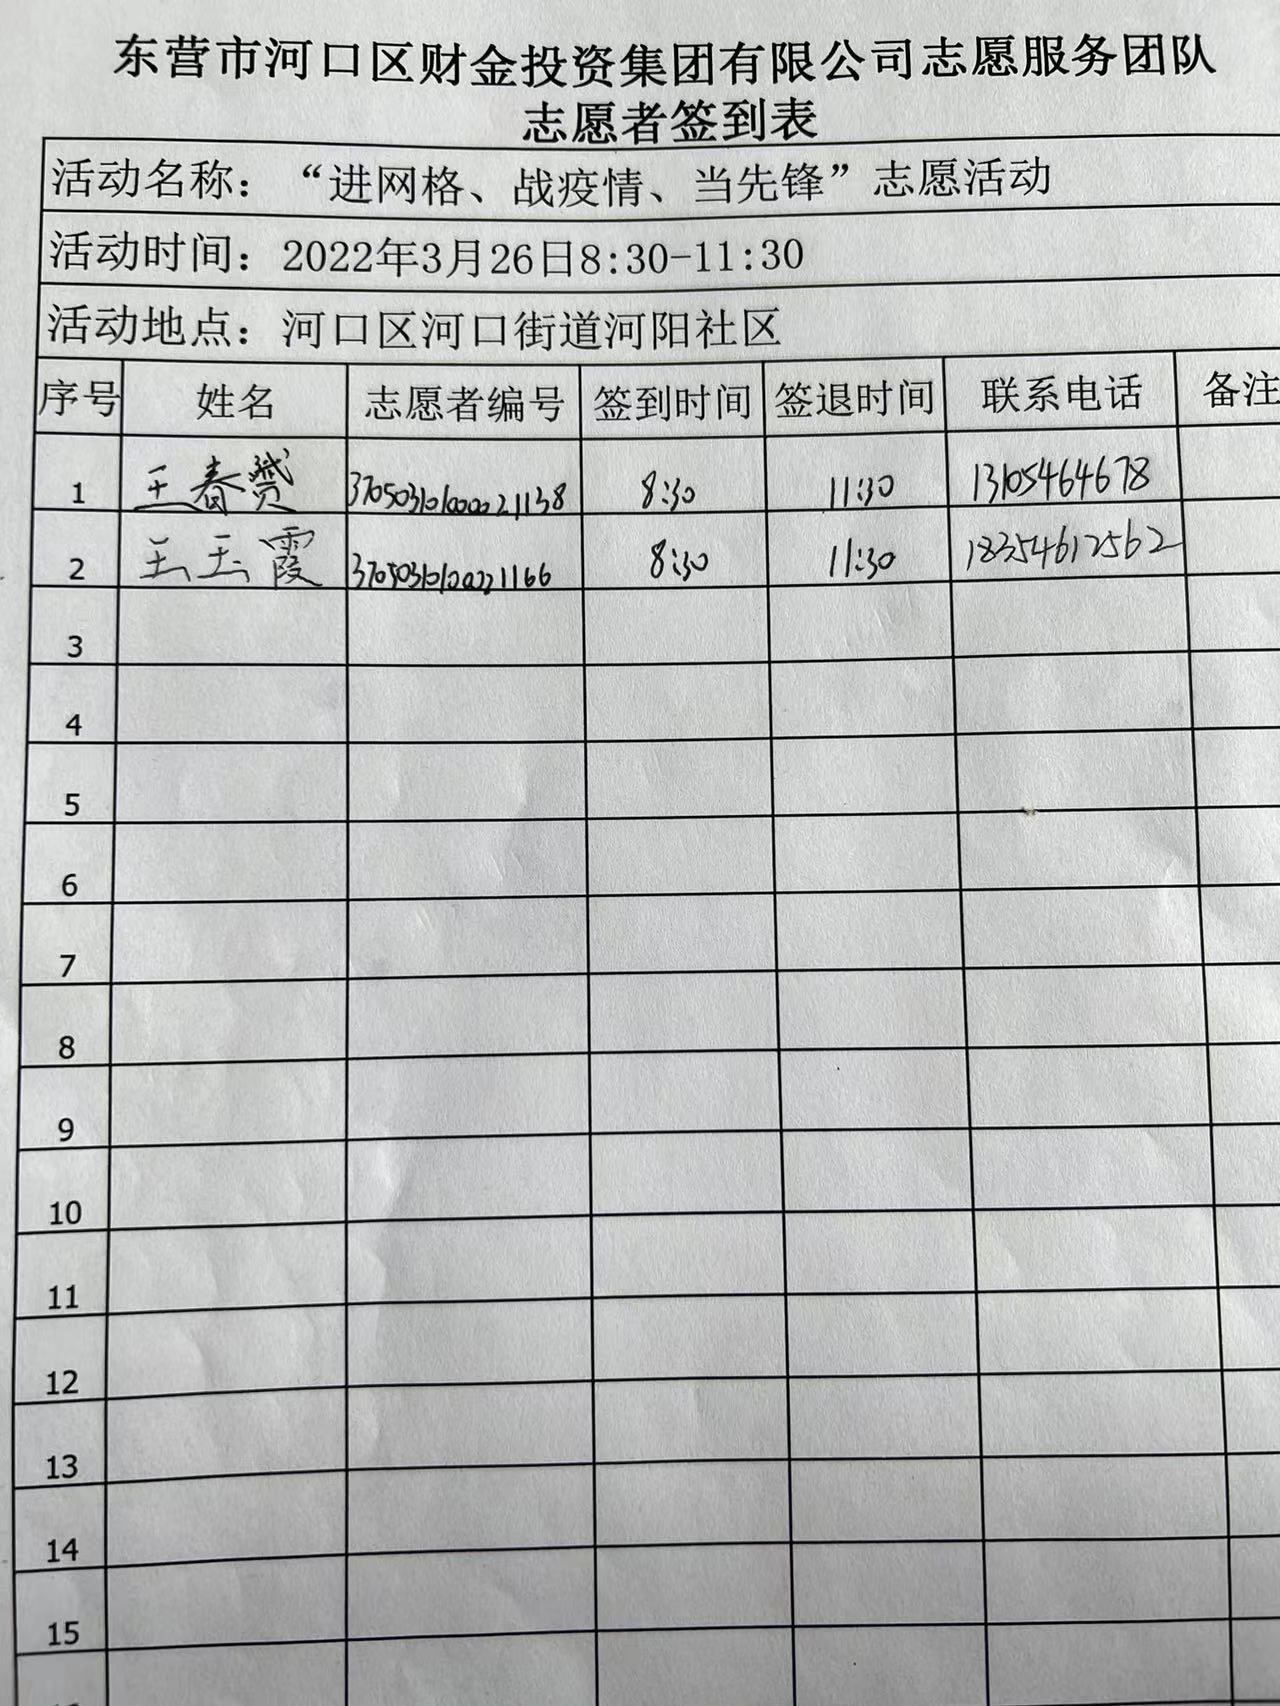 东营市河口区财金投资集团有限公司志愿服务团队
志愿者签到表
活动名称：“进网格、战疫情、当先锋”志愿活动
活动时间：2022年3月26日8:30-11:30
活动地点：河口区河口街道河阳社区
序号 姓名 志愿者编号 签到时间 签退时间 联系电话 备注
1 王春赟 8:30 11:30 13105464678
2 王玉霞 8:30 11:30 18354612562
3
4
5
6
7
8
9
10
11
12
13
14
15